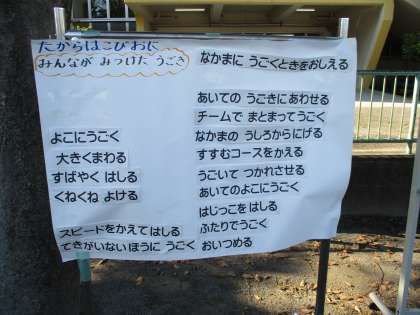 たからはこびおに
みんなが みつけた うごき
よこにうごく
大きくまわる
すばやく はしる
くねくね よける
スピードをかえてはしる
てきがいないほうに うごく
なかまに うごくときをおしえる
あいての うごきにあわせる
チームで まとまってうごく
なかまの うしろからにげる
すすむコースをかえる
うごいて つかれさせる
あいてのよこにうごく
はじっこを はしる
ふたりでうごく
おいつめる